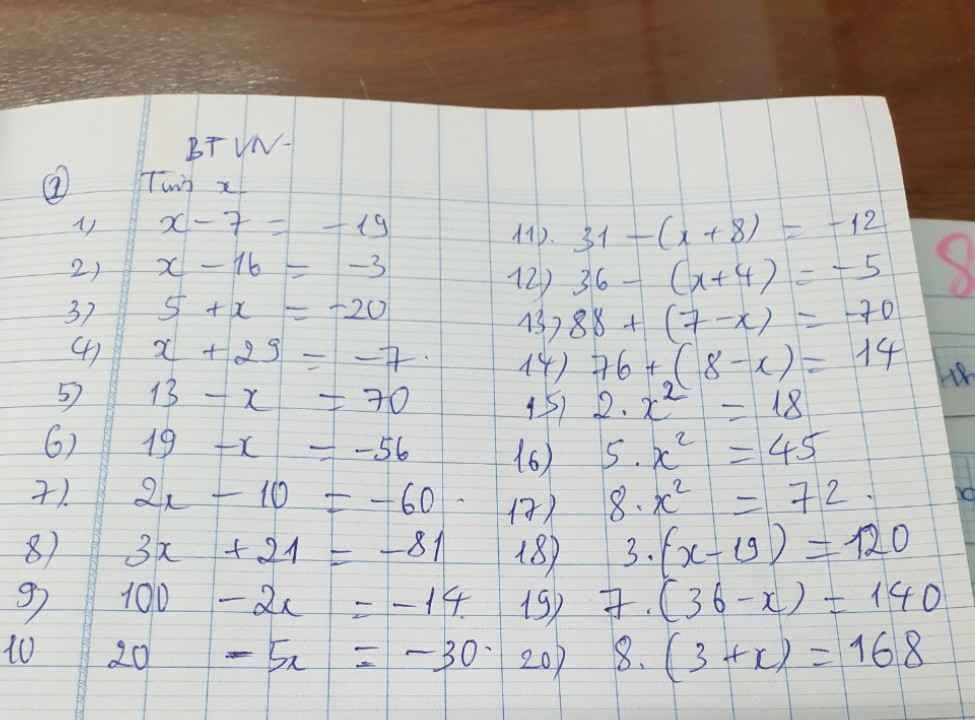 BTVN
① Tìm x
1) x - 7 = -19
2) x - 16 = -3
3) 5 + x = -20
4) x + 29 = -7.
5) 13 - x = 70
6) 19 - x = -56
7). 2x - 10 = -60.
8) 3x + 21 = -81
9) 100 - 2x = -14
10 20 - 5x = -30.
11). 31 - (x + 8) = -12
12) 36 - (x+4) = -5
13) 88 + (7 - x) = -70
14) 76 + (8 - x) = 14
15) 2. x² = 18
16) 5. x² = 45
17) 8. x² = 72.
18) 3. (x - 19) = 120
19) 7. (36 - x) = 140
20) 8. (3 + x) = 168
8